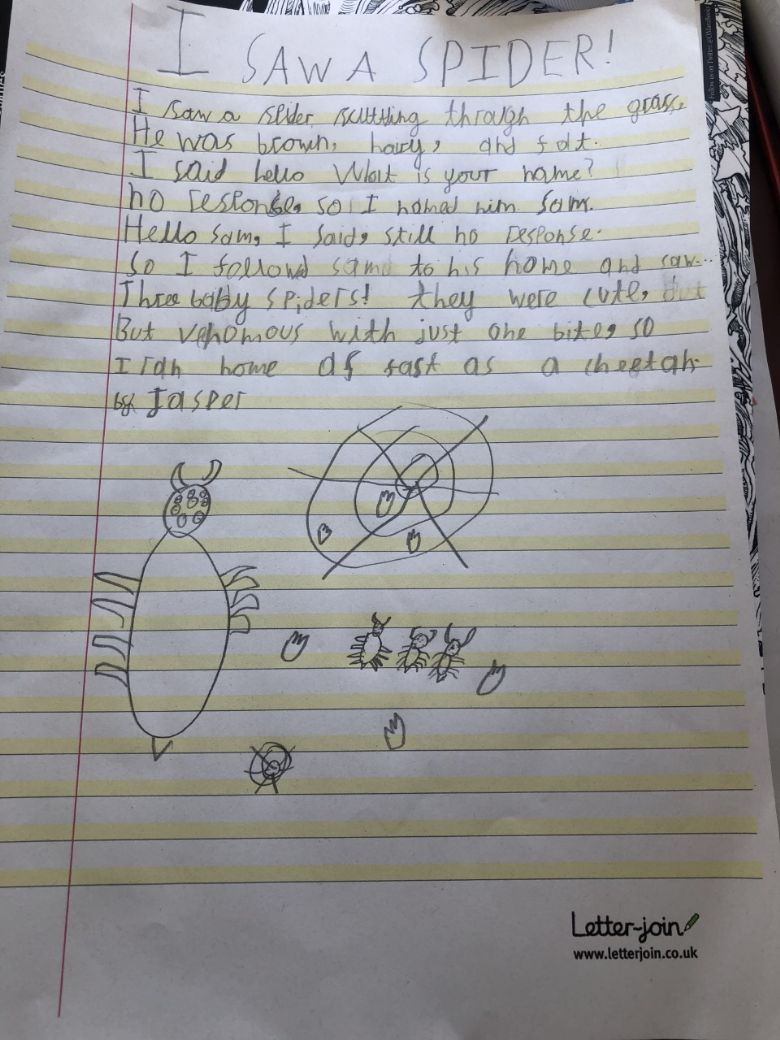 I SAW A SPIDER!
I saw a spider scuttling through the grass.
He was brown, hairy, and fat.
I said hello What is your name?
no response, so I named him Sam.
Hello Sam, I said, still no response.
So I followd sam to his home and saw...
Three baby spiders! they were cute, but
But venomous with just one bite, so
I ran home as fast as a cheetah
by Jasper
Letter-join
www.letterjoin.co.uk